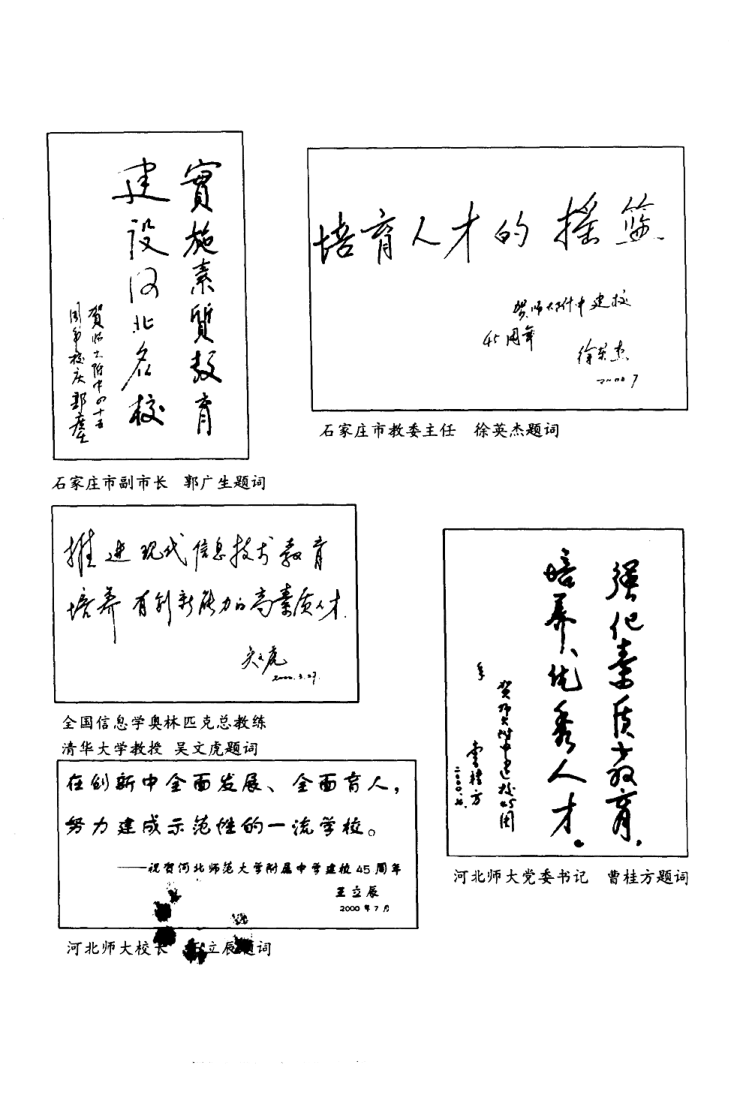 實施素質教育
建設河北名校
賀师大附中四十五
周年校庆 郭廣生
石家庄市副市长　郭广生题词
培育人才的摇篮
贺师大附中建校
45周年
徐英杰
2000.7
石家庄市教委主任　徐英杰题词
推进现代信息技术教育
培养有创新能力的高素质人才.
吴文虎
2000.5.27.
全国信息学奥林匹克总教练
清华大学教授 吴文虎题词
强化素质教育,
培养优秀人才。
贺师大附中建校45周
年
曹桂方
河北师大党委书记　曹桂方题词
在创新中全面发展、全面育人，
努力建成示范性的一流学校。
——祝贺河北师范大学附属中学建校45周年
王立辰
2000年7月
河北师大校长　立辰题词